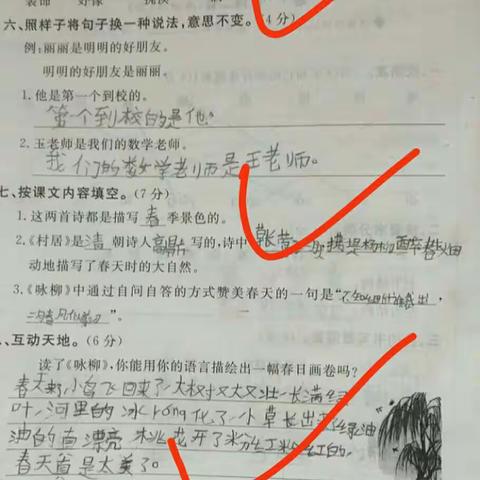 装饰 好像
六、照样子将句子换一种说法,意思不变。(4分)
例:丽丽是明明的好朋友。
明明的好朋友是丽丽。
1.他是第一个到校的。
第一个到校的是他。
2.王老师是我们的数学老师。
我们的数学老师是王老师。
七、按课文内容填空。(7分)
1.这两首诗都是描写春季景色的。
2.《村居》是清朝诗人高鼎写的,诗中
动地描写了春天时的大自然。
3.《咏柳》中通过自问自答的方式赞美春天的一句是“不知细叶谁裁出,
二月春风似剪刀”。
、互动天地。(6分)
读了《咏柳》,你能用你的语言描绘出一幅春日画卷吗?
春天 小鸟飞回来了,大树又大又壮,长满绿
叶,河里的冰 róng化了,小草长出 绿油
油的 漂亮 桃花开了粉红粉红的,
春天 是太美了。